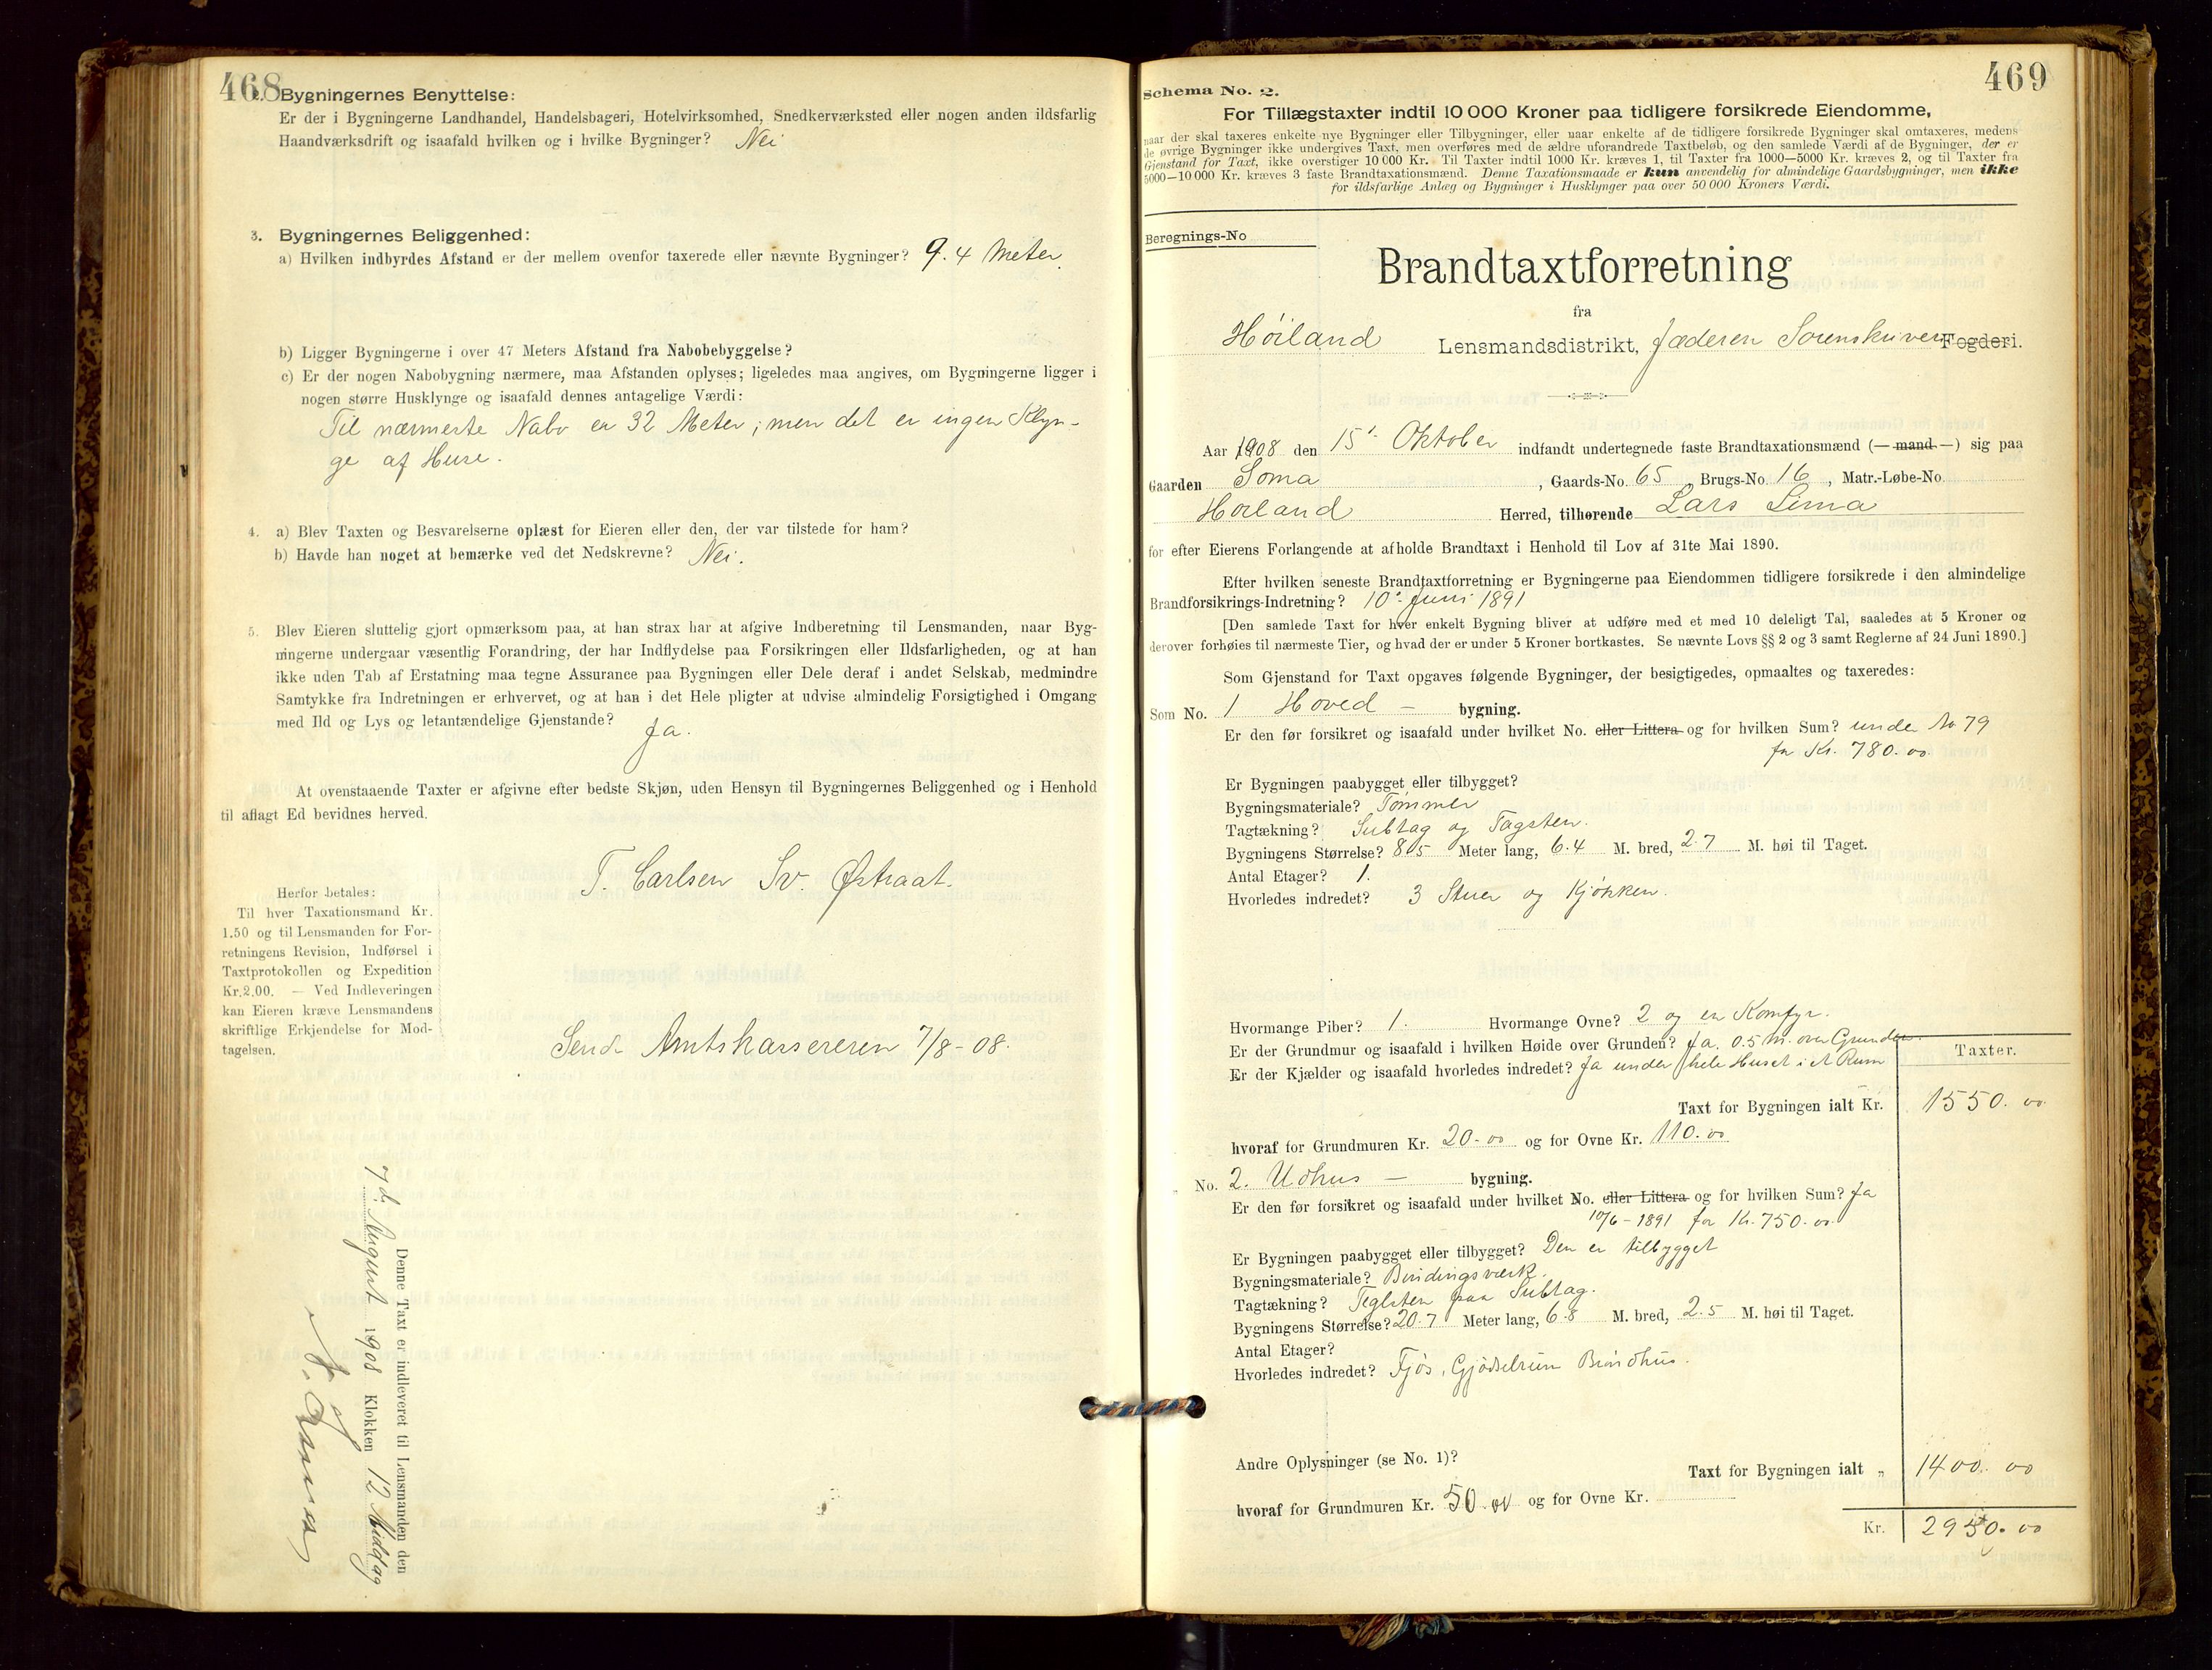 468
2. Bygningernes Benyttelse:
Er der i Bygningerne Landhandel, Handelsbageri, Hotelvirksomhed, Snedkerværksted eller nogen anden ildsfarlig
Haandværksdrift og isaafald hvilken og i hvilke Bygninger? Nei
3. Bygningernes Beliggenhed:
a) Hvilken indbyrdes Afstand er der mellem ovenfor taxerede eller nævnte Bygninger? 9.4 Meter.
b) Ligger Bygningerne i over 47 Meters Afstand fra Nabobebyggelse?
c) Er der nogen Nabobygning nærmere, maa Afstanden oplyses; ligeledes maa angives, om Bygningerne ligger i
nogen større Husklynge og isaafald dennes antagelige Værdi:
Til nærmeste Nabo er 32 Meter; men det er ingen Klyn-
ge af Huse.
4. a) Blev Taxten og Besvarelserne oplæst for Eieren eller den, der var tilstede for ham?
b) Havde han noget at bemærke ved det Nedskrevne? Nei.
5. Blev Eieren sluttelig gjort opmærksom paa, at han strax har at afgive Indberetning til Lensmanden, naar Byg-
ningerne undergaar væsentlig Forandring, der har Indflydelse paa Forsikringen eller Ildsfarligheden, og at han
ikke uden Tab af Erstatning maa tegne Assurance paa Bygningen eller Dele deraf i andet Selskab, medmindre
Samtykke fra Indretningen er erhvervet, og at han i det Hele pligter at udvise almindelig Forsigtighed i Omgang
med Ild og Lys og letantændelige Gjenstande? Ja.
At ovenstaaende Taxter er afgivne efter bedste Skjøn, uden Hensyn til Bygningernes Beliggenhed og i Henhold
til aflagt Ed bevidnes herved.
T. Carlsen Sv. Østraat.
Herfor betales:
Til hver Taxationsmand Kr.
1.50 og til Lensmanden for For-
retningens Revision, Indførsel i
Taxtprotokollen og Expedition
Kr. 2.00. — Ved Indleveringen
kan Eieren kræve Lensmandens
skriftlige Erkjendelse for Mod-
tagelsen.
Sendt Amtskassereren 7/8-08.
Denne Taxt er indleveret til Lensmanden den
7d August 1908 Klokken 12 Middag
469
Schema No. 2.
For Tillægstaxter indtil 10 000 Kroner paa tidligere forsikrede Eiendomme,
naar der skal taxeres enkelte nye Bygninger eller Tilbygninger, eller naar enkelte af de tidligere forsikrede Bygninger skal omtaxeres, medens
de øvrige Bygninger ikke undergives Taxt, men overføres med de ældre uforandrede Taxtbeløb, og den samlede Værdi af de Bygninger, der er
Gjenstand for Taxt, ikke overstiger 10 000 Kr. Til Taxter indtil 1000 Kr. kræves 1, til Taxter fra 1000—5000 Kr. kræves 2, og til Taxter fra
5000—10 000 Kr. kræves 3 faste Brandtaxationsmænd. Denne Taxationsmaade er kun anvendelig for almindelige Gaardsbygninger, men ikke
for ildsfarlige Anlæg og Bygninger i Husklynger paa over 50 000 Kroners Værdi.
Beregnings-No
Brandtaxtforretning
fra
Høiland Lensmandsdistrikt, Jæderen Sorenskriveri Fogderi.
Aar 1908 den 15' Oktober indfandt undertegnede faste Brandtaxationsmænd (— mand —) sig paa
Gaarden Soma, Gaards-No. 65, Brugs-No. 16, Matr.-Løbe-No.
Høiland Herred, tilhørende Lars Lima
for efter Eierens Forlangende at afholde Brandtaxt i Henhold til Lov af 31te Mai 1890.
Efter hvilken seneste Brandtaxtforretning er Bygningerne paa Eiendommen tidligere forsikrede i den almindelige
Brandforsikrings-Indretning? 10' Juni 1891
[Den samlede Taxt for hver enkelt Bygning bliver at udføre med et med 10 deleligt Tal, saaledes at 5 Kroner og
derover forhøies til nærmeste Tier, og hvad der er under 5 Kroner bortkastes. Se nævnte Lovs §§ 2 og 3 samt Reglerne af 24 Juni 1890.]
Som Gjenstand for Taxt opgaves følgende Bygninger, der besigtigedes, opmaaltes og taxeredes:
Som No. 1 Hoved — bygning.
Er den før forsikret og isaafald under hvilket No. eller Littera og for hvilken Sum? under No 79
for Kr. 780.00
Er Bygningen paabygget eller tilbygget?
Bygningsmateriale? Tømmer
Tagtækning? Subtag og Tagsten.
Bygningens Størrelse? 8.5 Meter lang, 6.4 M. bred, 2.7 M. høi til Taget.
Antal Etager? 1.
Hvorledes indredet? 3 Stuer og Kjøkken.
Hvormange Piber? 1. Hvormange Ovne? 2 og en Komfyr.
Er der Grundmur og isaafald i hvilken Høide over Grunden? Ja. 0.5 M. over Grunden.
Er der Kjælder og isaafald hvorledes indredet? Ja under hele Huset i et Rum
Taxter.
Taxt for Bygningen ialt Kr. 1550.00
hvoraf for Grundmuren Kr. 20.00 og for Ovne Kr. 110.00
No. 2. Udhus — bygning.
Er den før forsikret og isaafald under hvilket No. eller Littera og for hvilken Sum? Ja
10/6-1891 for Kr. 750.00
Er Bygningen paabygget eller tilbygget? Den er tilbygget
Bygningsmateriale? Bindingsværk.
Tagtækning? Teglsten paa Subtag.
Bygningens Størrelse? 20.7 Meter lang, 6.8 M. bred, 2.5 M. høi til Taget.
Antal Etager?
Hvorledes indredet? Fjøs, Gjødselrum Brøndhus.
Andre Oplysninger (se No. 1)?
Taxt for Bygningen ialt „ 1400.00
hvoraf for Grundmuren Kr. 50.00 og for Ovne Kr.
Kr. 2950.00